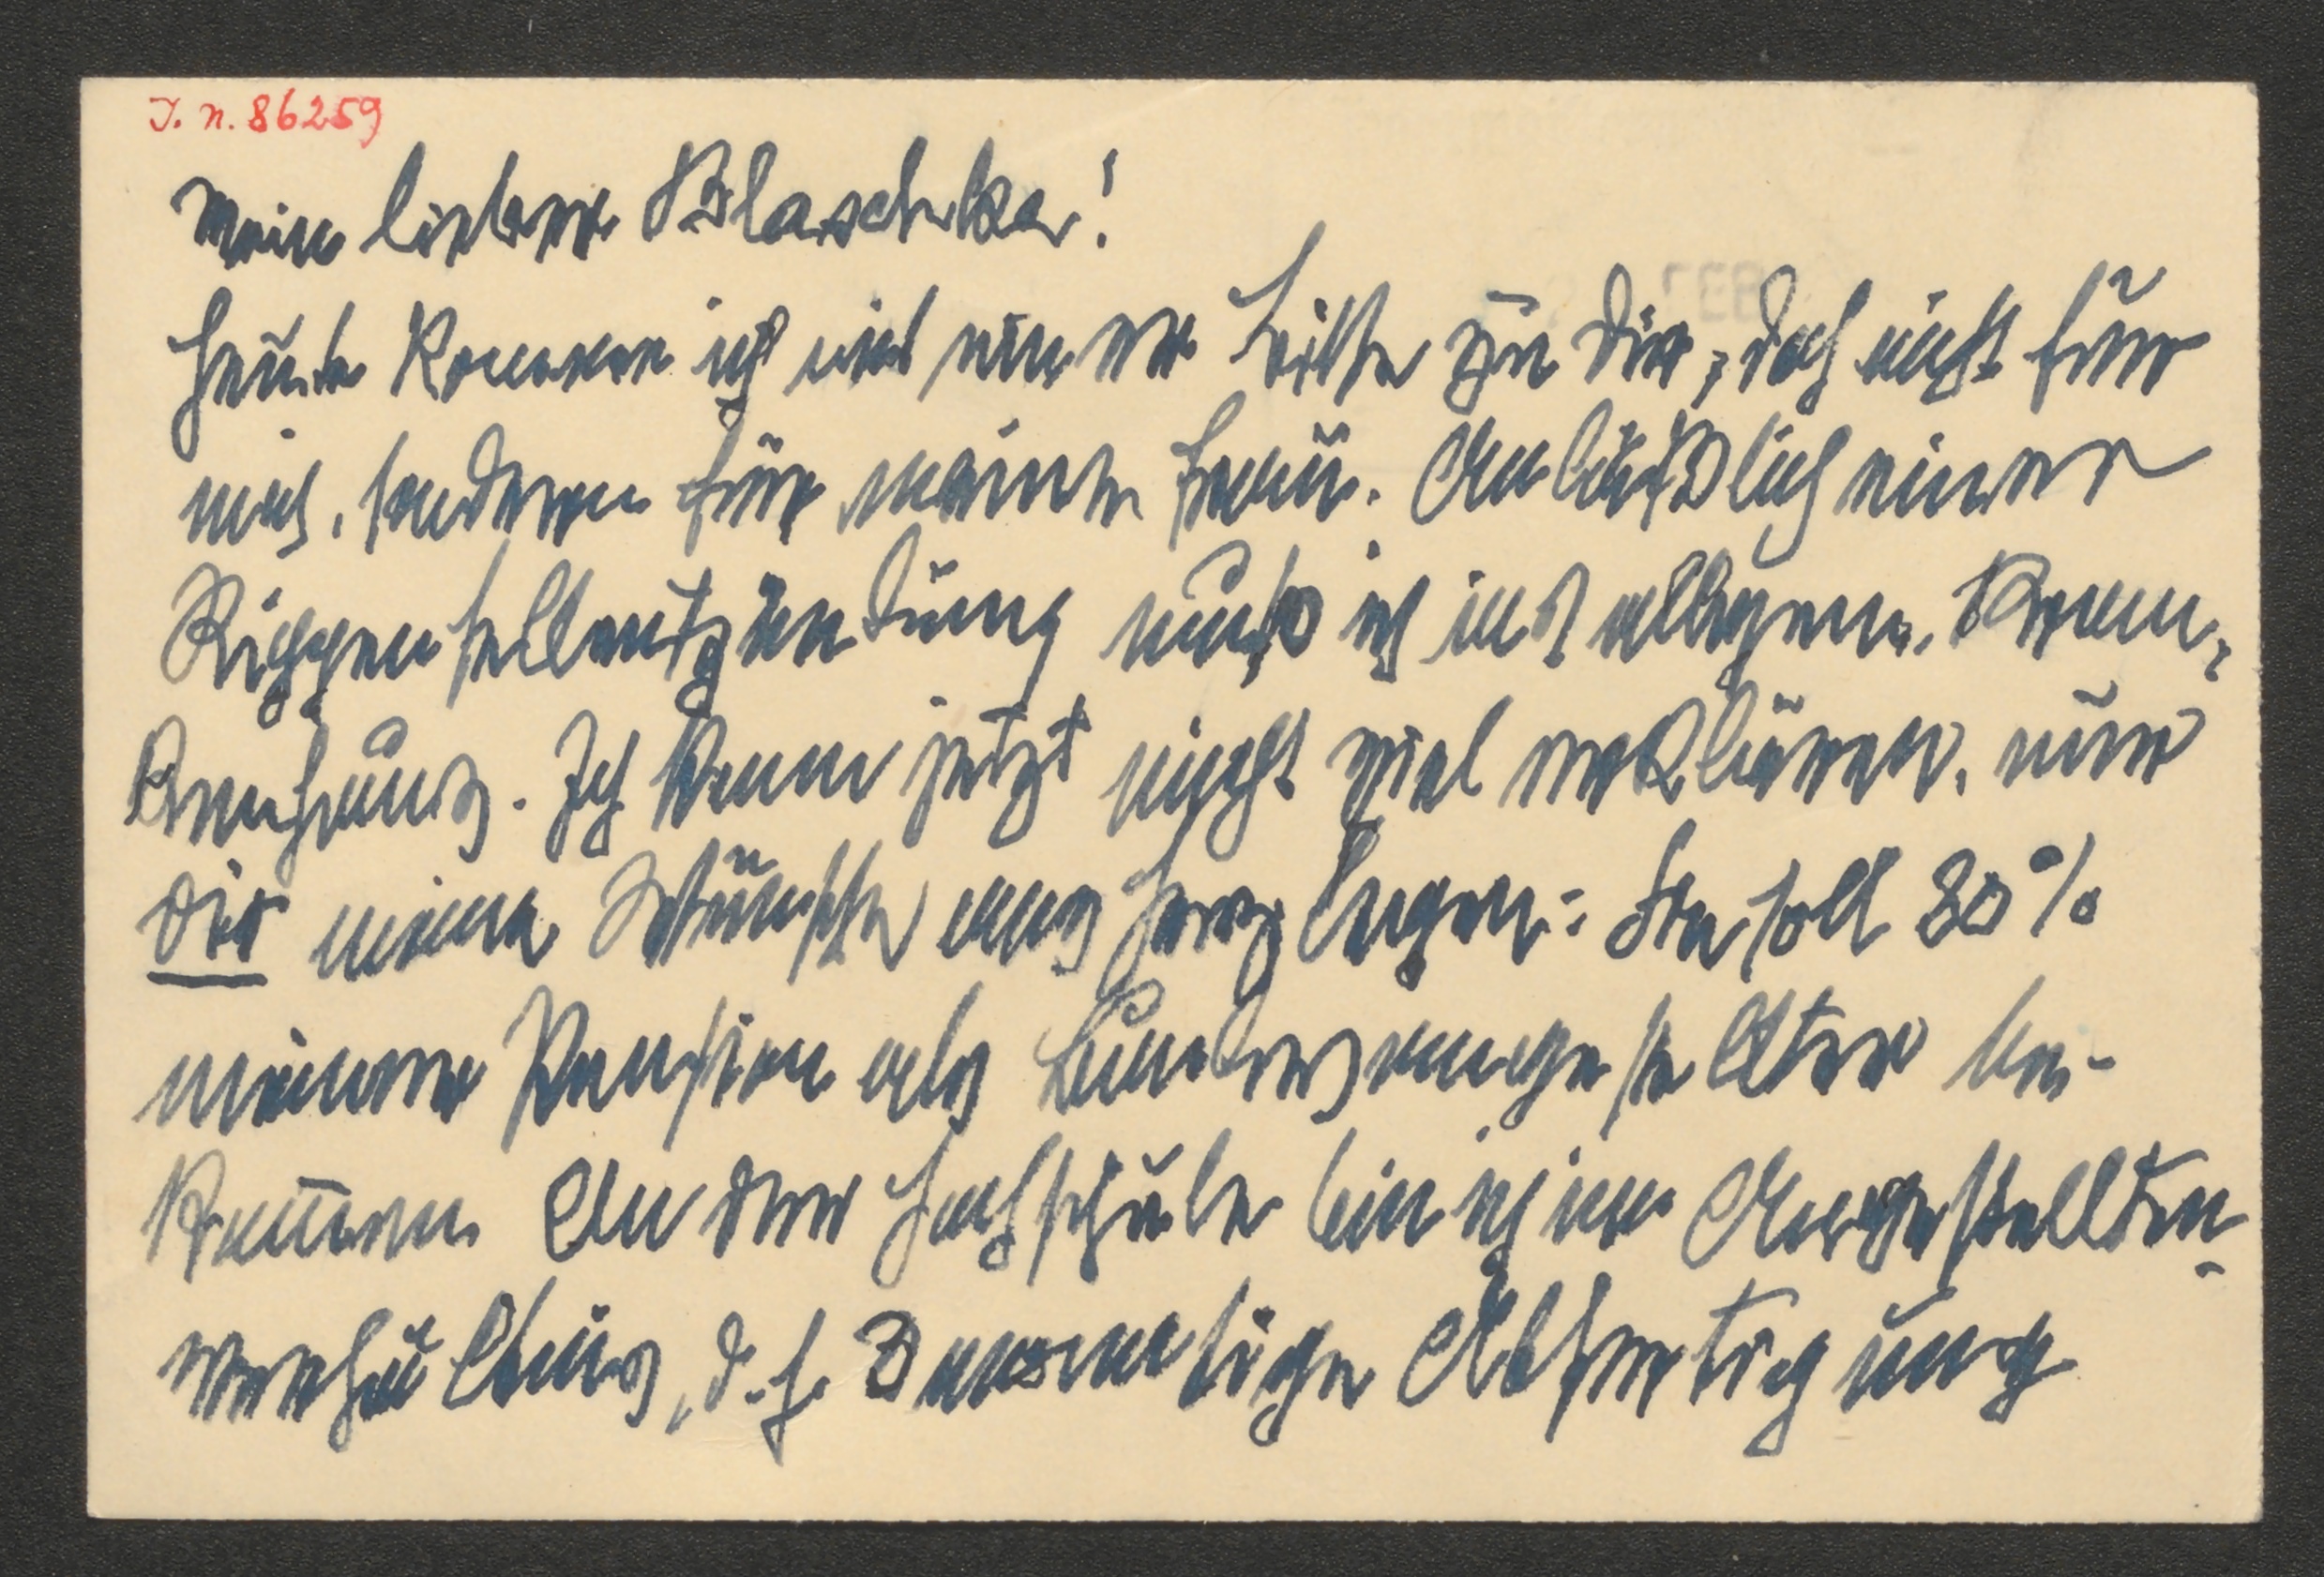 I. N. 86259
Mein lieber Blaschka!
Heute komme ich mit einer Bitte zu Dir, doch nicht für
mich, sondern für meine Frau. Anläßlich einer
Rippenfellentzündung muß ich ins allgem. Kran-
kenhaus. Ich kann jetzt nicht viel erklären, nur
Dir meine Wünsche ans Herz legen: Sie soll 80%
meiner Pension als Bundesangestellter be-
kom̅en. An der Hochschule bin ich im Angestellten-
verhältnis, d. h. 3 monatige Abfertigung